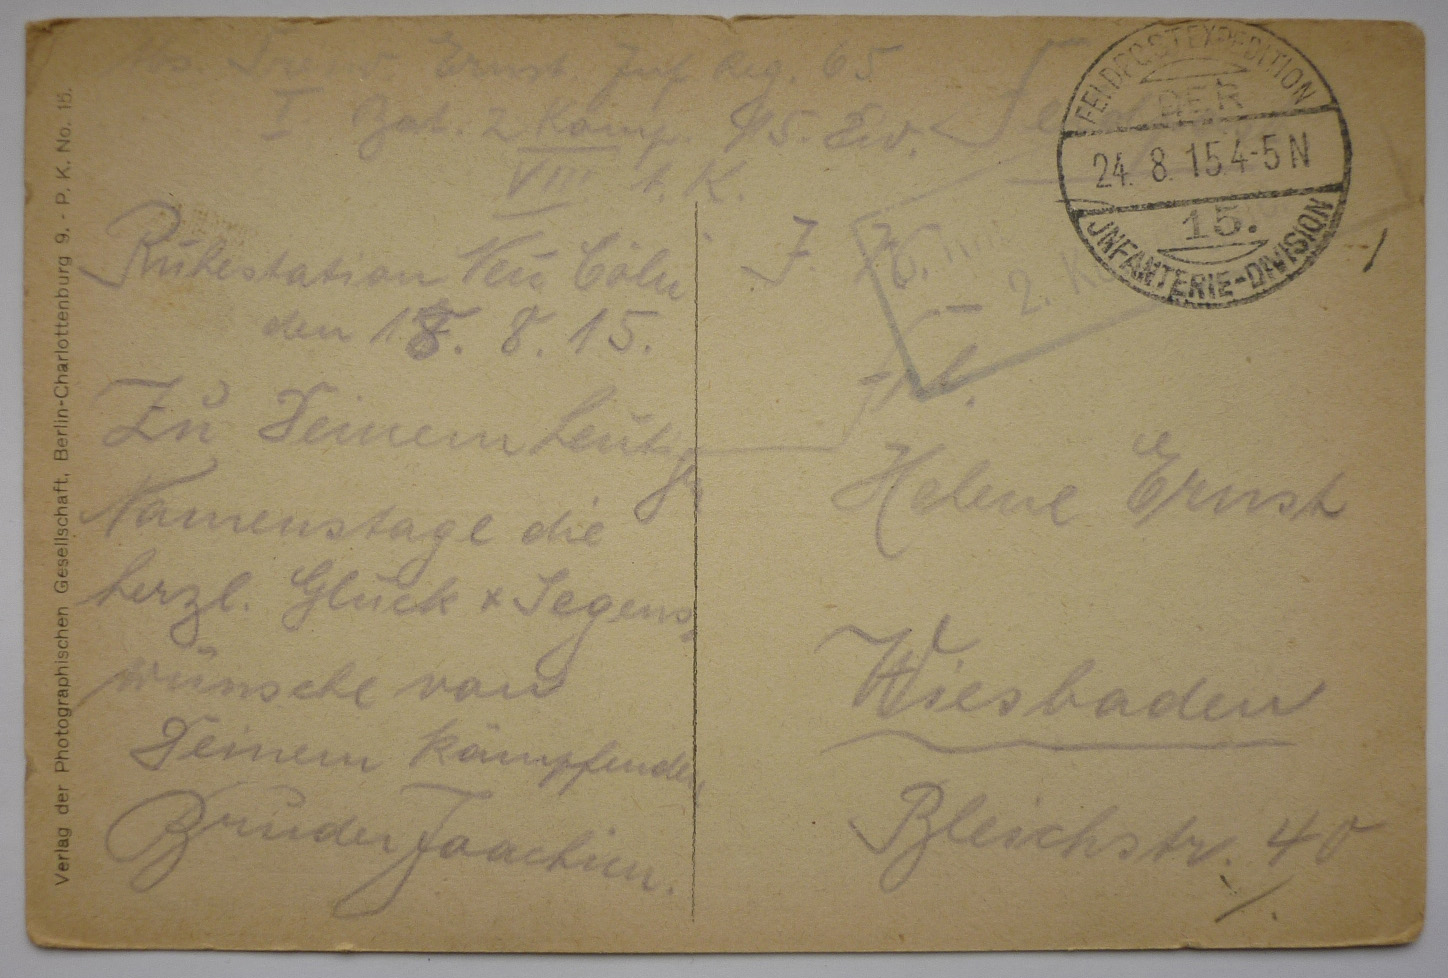 Abs. Ernst Inf Reg. 65
I Bat. 2 Komp. 15. Div.
VIII A. K.
FELDPOSTEXPEDITION
DER
24. 8. 15 4-5 N
15.
INFANTERIE-DIVISION
Ruhestation Neu Cöln
den 18. 8. 15.
Zu Deinem heutig
Namenstage die
herzl. Glück & Segens
wünsche von
Deinem kämpfenden
Bruder Joachim.
2. K
Frl.
Helene Ernst
Wiesbaden
Bleichstr. 40
Verlag der Photographischen Gesellschaft, Berlin-Charlottenburg 9. - P. K. No. 15.